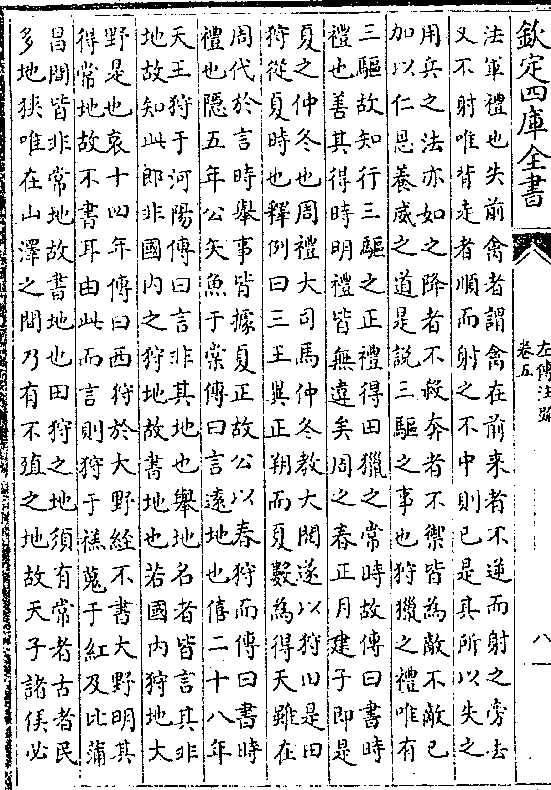 欽定四庫全書
左傳注疏
卷五
八
法軍禮也失前禽者謂禽在前來者不逆而射之旁去
又不射唯背走者順而射之不中則已是其所以失之
用兵之法亦如之降者不殺奔者不禦皆為敵不敵已
加以仁恩養威之道是説三驅之事也狩獵之禮唯有
三驅故知行三驅之正禮得田獵之常時故傳曰書時
禮也善其得時明禮皆無違矣周之春正月建子即是
夏之仲冬也周禮大司馬仲冬教大閱遂以狩田是田
狩從夏時也釋例曰三王異正朔而夏數為得天雖在
周代於言時舉事皆據夏正故公以春狩而傳曰書時
禮也隱五年公矢魚于棠傳曰言遠地也僖二十八年
天王狩于河陽傳曰言非其地也舉地名者皆言其非
地故知此郎非國内之狩地故書地也若國内狩地大
野是也哀十四年傳曰西狩於大野經不書大野明其
得常地故不書耳由此而言則狩于禚蒐于紅及比蒲
昌間皆非常地故書地也田狩之地須有常者古者民
多地狹唯在山澤之間乃有不殖之地故天子諸侯必